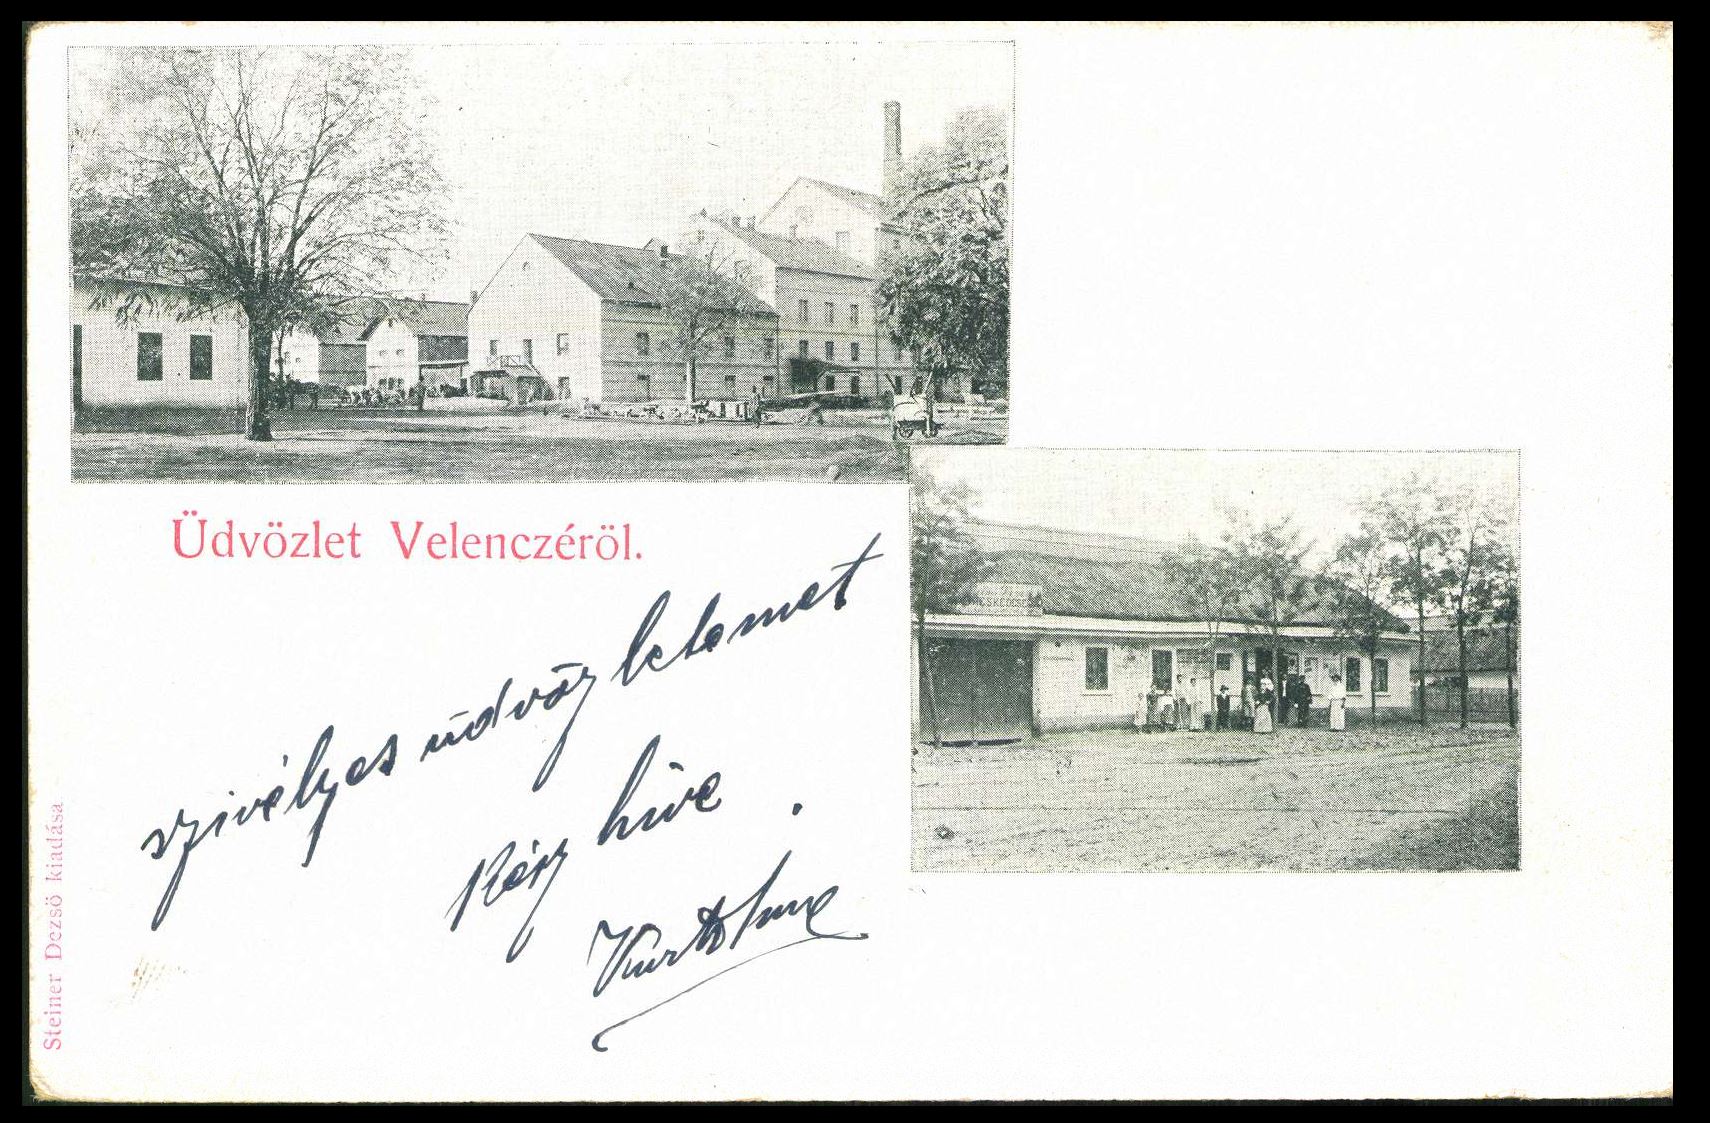 Üdvözlet Velenczéröl.
szivélyes üdvözletemet
kész hive
Steiner Dezsö kiadása